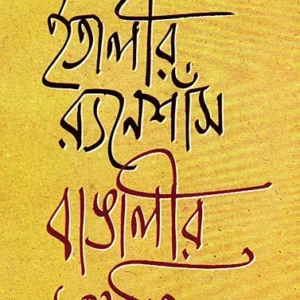 ইতালীর
র‍্যনেশাঁস
বাঙালীর